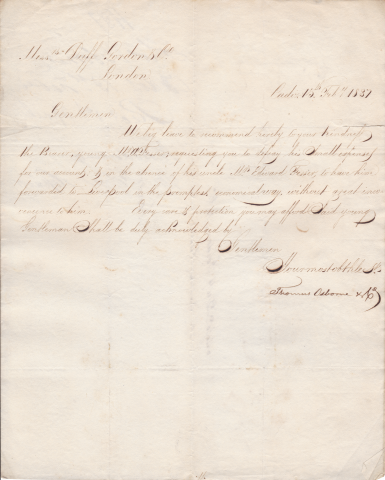 Mess.rs Duff Gordon & Co
London
Cadiz 15 Feby 1837
Gentlemen
We beg leave to recommend hereby to your kindness
the Bearer, young requesting you to defray his small expenses
for our account, & in the absence of his uncle Mr Edward to have him
forwarded to Liverpool in the promptest, economical way, without great inconveniency
to him. Every care & protection you may afford said young
Gentleman Shall be duly acknowledged by
Gentlemen
Your most obt
Thomas Osborne & Co